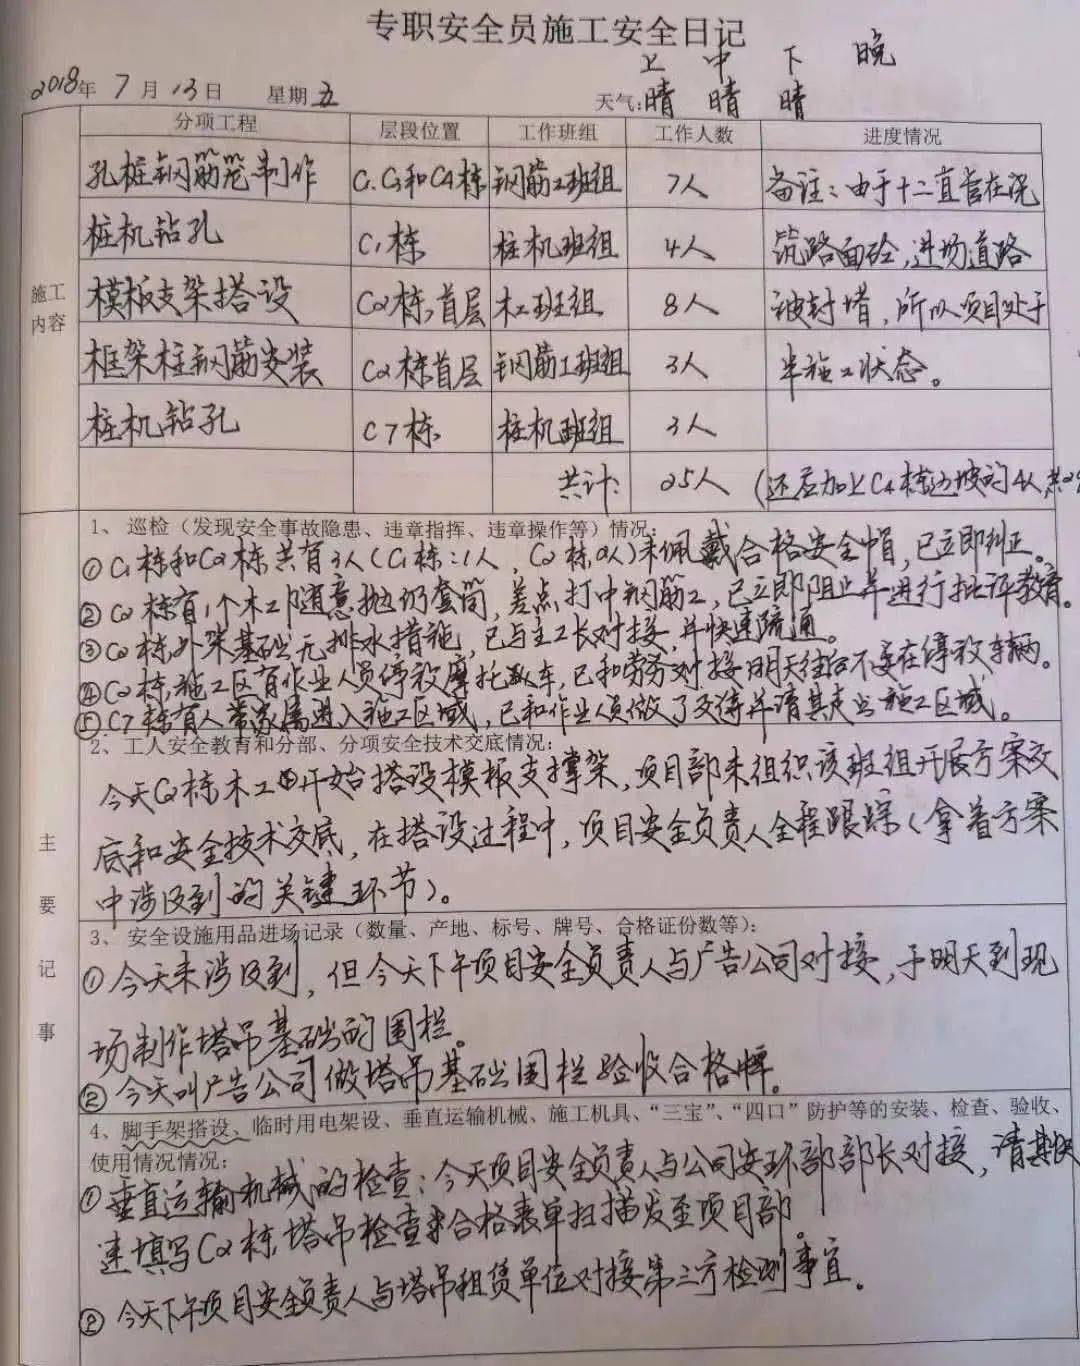 专职安全员施工安全日记
上 中 下 晚
2018年 7月 13日 星期五 天气:晴 晴 晴
分项工程 层段位置 工作班组 工作人数 进度情况
施工内容
孔桩钢筋笼制作 C1.C3和C4栋 钢筋工班组 7人 备注:由于十二直营在浇
桩机钻孔 C1栋 桩机班组 4人 筑路面砼,进场道路
模板支架搭设 C2栋,首层 木工班组 8人 被封堵,所以项目处于
框架柱钢筋安装 C2栋首层 钢筋工班组 3人 半施工状态。
桩机钻孔 C7栋 桩机班组 3人
共计: 25人 (还应加上C4栋边坡的4人,共29
主要记事
1、巡检(发现安全事故隐患、违章指挥、违章操作等)情况:
①C1栋和C2栋共有3人(C1栋:1人,C2栋2人)未佩戴合格安全帽,已立即纠正。
②C2栋有1个木工随意抛扔套筒,差点打中钢筋工,已立即阻止并进行批评教育。
③C2栋,外架基础无排水措施,已与主工长对接,并快速疏通。
④C2栋,施工区有作业人员停放摩托车,已和劳务对接明天往后不要在停放车辆。
⑤C7栋有人带家属进入施工区域,已和作业人员做了交待并请其走出施工区域。
2、工人安全教育和分部、分项安全技术交底情况:
今天C2栋木工开始搭设模板支撑架,项目部未组织该班组开展方案交
底和安全技术交底,在搭设过程中,项目安全负责人全程跟踪(拿着方案
中涉及到的关键环节)。
3、安全设施用品进场记录(数量、产地、标号、牌号、合格证份数等):
①今天未涉及到,但今天下午项目安全负责人与广告公司对接,于明天到现
场制作塔吊基础的围栏。
②今天叫广告公司做塔吊基础围栏验收合格牌。
4、脚手架搭设、临时用电架设、垂直运输机械、施工机具、“三宝”、“四口”防护等的安装、检查、验收、
使用情况情况:
①垂直运输机械的检查:今天项目安全负责人与公司安环部部长对接,请其快
速填写C2栋,塔吊检查合格表单扫描发至项目部。
②今天下午项目安全负责人与塔吊租赁单位对接第三方检测事宜。